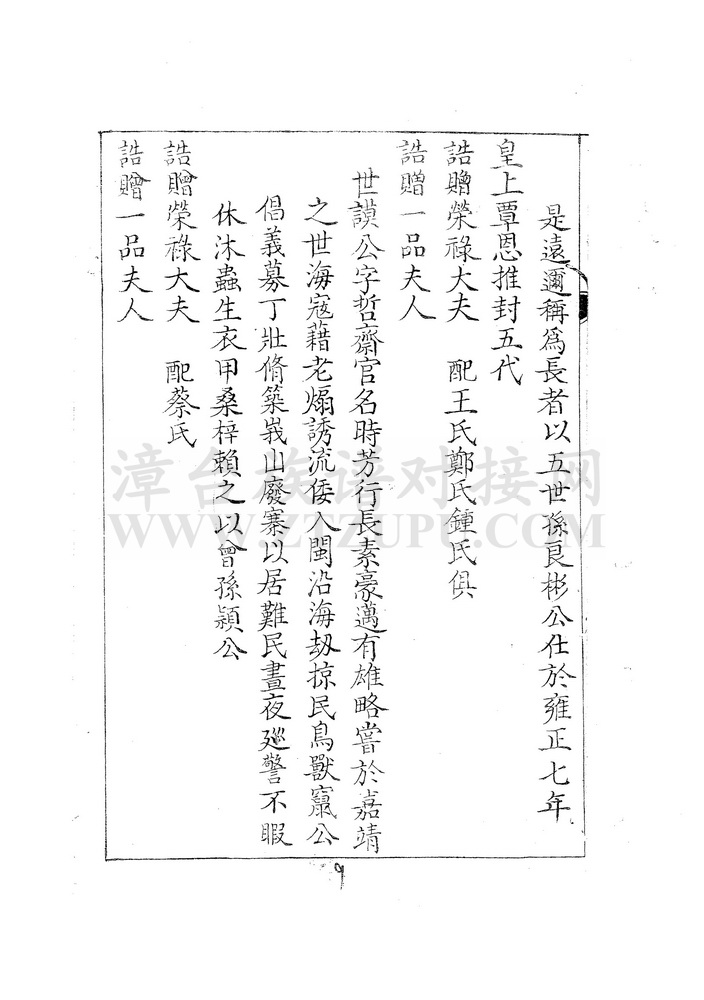 是遠邇稱爲長者以五世孫良彬公仕於雍正七年
皇上覃恩推封五代
誥贈榮祿大夫 配王氏鄭氏鍾氏俱
誥贈一品夫人
世謨公字哲齋官名時芳行長素豪邁有雄略嘗於嘉靖
之世海寇藉老煽誘流倭入閩沿海刼掠民鳥獸竄公
倡義募丁壯脩築峩山廢寨以居難民晝夜廵警不暇
休沐蟲生衣甲桑梓賴之以曾孫穎公
誥贈榮祿大夫 配蔡氏
誥贈一品夫人
9
漳台族谱对接网
WWW.ZTZUPU.COM